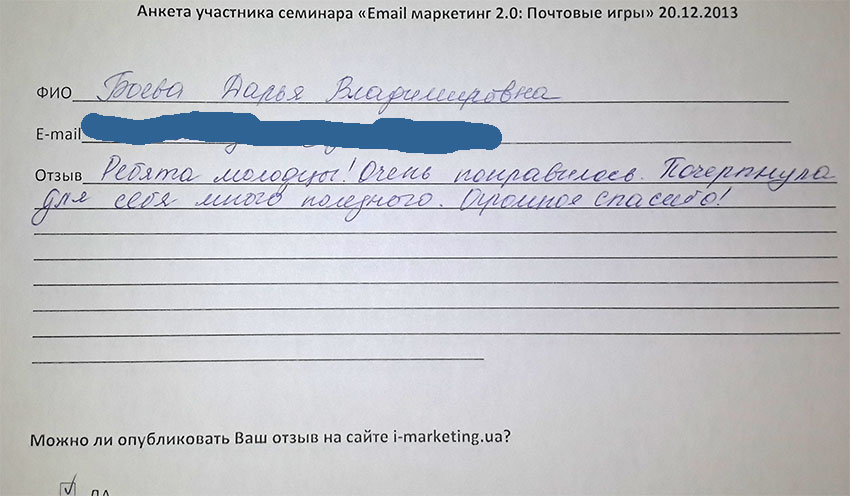 Анкета участника семинара «Email маркетинг 2.0: Почтовые игры» 20.12.2013
ФИО Боева Дарья Владимировна
E-mail
Отзыв Ребята молодцы! Очень понравилось. Почерпнула
для себя много полезного. Огромное спасибо!
Можно ли опубликовать Ваш отзыв на сайте i-marketing.ua?
ДА